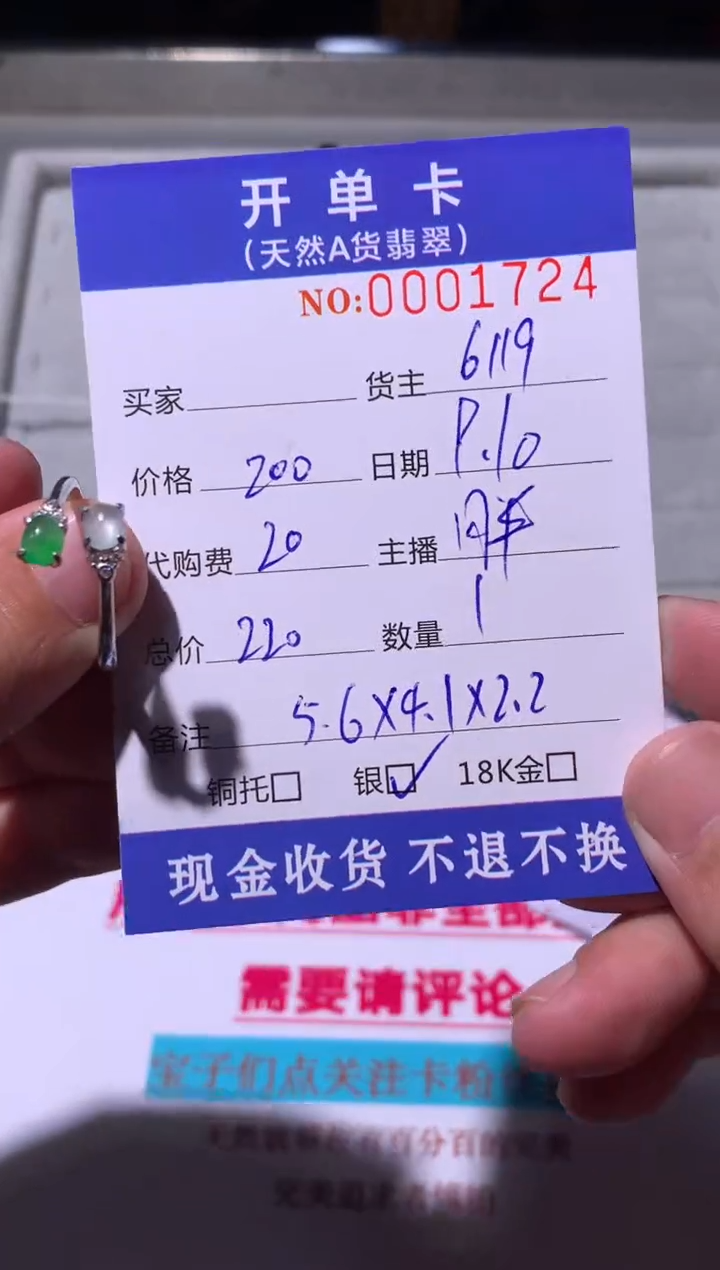 开单卡
(天然A货翡翠)
NO:0001724
买家 货主 6119
价格 200 日期 P.10
代购费 20 主播
总价 220 数量 1
备注 5.6X4.1X2.2
铜托□ 银☑ 18K金□
现金收货 不退不换
需要请评论
宝子们点关注卡粉